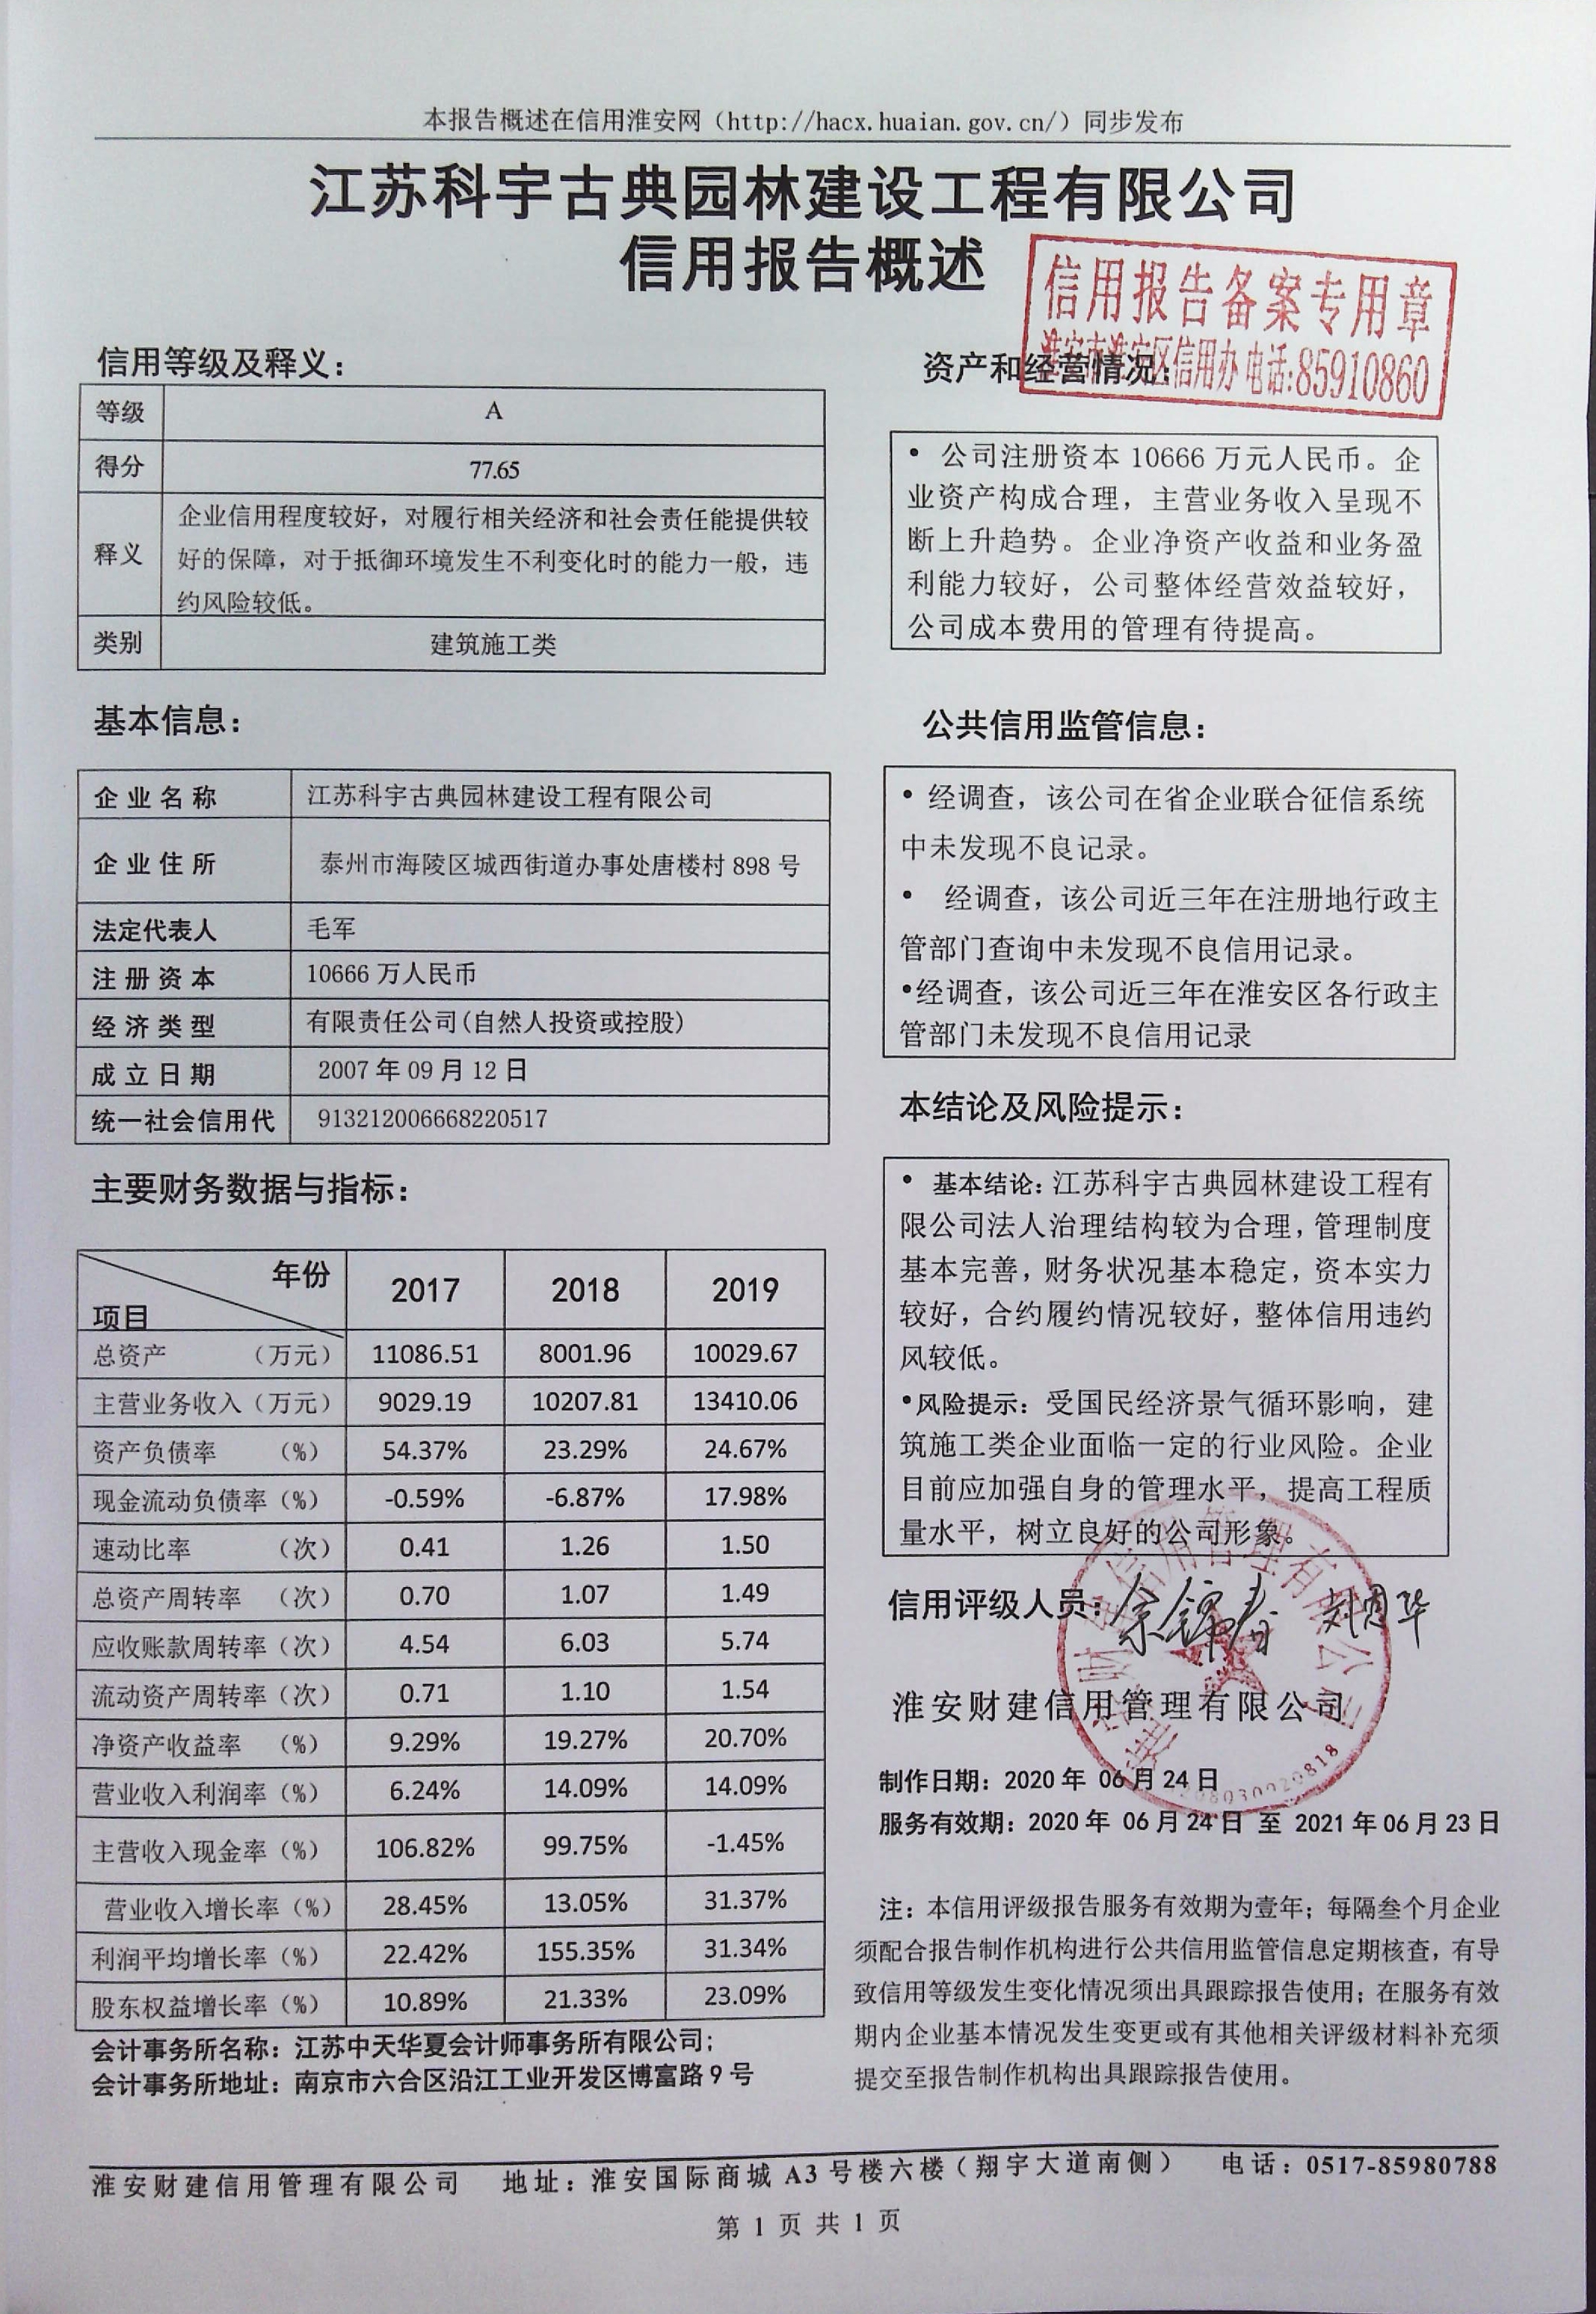 本报告概述在信用淮安网（http://hacx.huaian.gov.cn/）同步发布
江苏科宇古典园林建设工程有限公司
信用报告概述
信用报告备案专用章
淮安市淮安区信用办 电话:85910860
信用等级及释义：
等级 A
得分 77.65
释义 企业信用程度较好，对履行相关经济和社会责任能提供较
好的保障，对于抵御环境发生不利变化时的能力一般，违
约风险较低。
类别 建筑施工类
基本信息：
企业名称 江苏科宇古典园林建设工程有限公司
企业住所 泰州市海陵区城西街道办事处唐楼村 898 号
法定代表人 毛军
注册资本 10666 万人民币
经济类型 有限责任公司(自然人投资或控股)
成立日期 2007 年 09 月 12 日
统一社会信用代 913212006668220517
主要财务数据与指标：
年份 2017 2018 2019
项目
总资产 （万元） 11086.51 8001.96 10029.67
主营业务收入（万元） 9029.19 10207.81 13410.06
资产负债率 （%） 54.37% 23.29% 24.67%
现金流动负债率（%） -0.59% -6.87% 17.98%
速动比率 （次） 0.41 1.26 1.50
总资产周转率 （次） 0.70 1.07 1.49
应收账款周转率（次） 4.54 6.03 5.74
流动资产周转率（次） 0.71 1.10 1.54
净资产收益率 （%） 9.29% 19.27% 20.70%
营业收入利润率（%） 6.24% 14.09% 14.09%
主营收入现金率（%） 106.82% 99.75% -1.45%
营业收入增长率（%） 28.45% 13.05% 31.37%
利润平均增长率（%） 22.42% 155.35% 31.34%
股东权益增长率（%） 10.89% 21.33% 23.09%
会计事务所名称：江苏中天华夏会计师事务所有限公司；
会计事务所地址：南京市六合区沿江工业开发区博富路 9 号
资产和经营情况：
• 公司注册资本 10666 万元人民币。企
业资产构成合理，主营业务收入呈现不
断上升趋势。企业净资产收益和业务盈
利能力较好，公司整体经营效益较好，
公司成本费用的管理有待提高。
公共信用监管信息：
• 经调查，该公司在省企业联合征信系统
中未发现不良记录。
• 经调查，该公司近三年在注册地行政主
管部门查询中未发现不良信用记录。
•经调查，该公司近三年在淮安区各行政主
管部门未发现不良信用记录
本结论及风险提示：
• 基本结论：江苏科宇古典园林建设工程有
限公司法人治理结构较为合理，管理制度
基本完善，财务状况基本稳定，资本实力
较好，合约履约情况较好，整体信用违约
风较低。
•风险提示：受国民经济景气循环影响，建
筑施工类企业面临一定的行业风险。企业
目前应加强自身的管理水平，提高工程质
量水平，树立良好的公司形象。
信用评级人员：
淮安财建信用管理有限公司
淮安财建信用管理有限公司
制作日期：2020 年 06 月 24 日
服务有效期：2020 年 06 月 24 日 至 2021 年 06 月 23 日
注：本信用评级报告服务有效期为壹年；每隔叁个月企业
须配合报告制作机构进行公共信用监管信息定期核查，有导
致信用等级发生变化情况须出具跟踪报告使用；在服务有效
期内企业基本情况发生变更或有其他相关评级材料补充须
提交至报告制作机构出具跟踪报告使用。
淮安财建信用管理有限公司 地址：淮安国际商城 A3 号楼六楼（翔宇大道南侧） 电话：0517-85980788
第 1 页 共 1 页